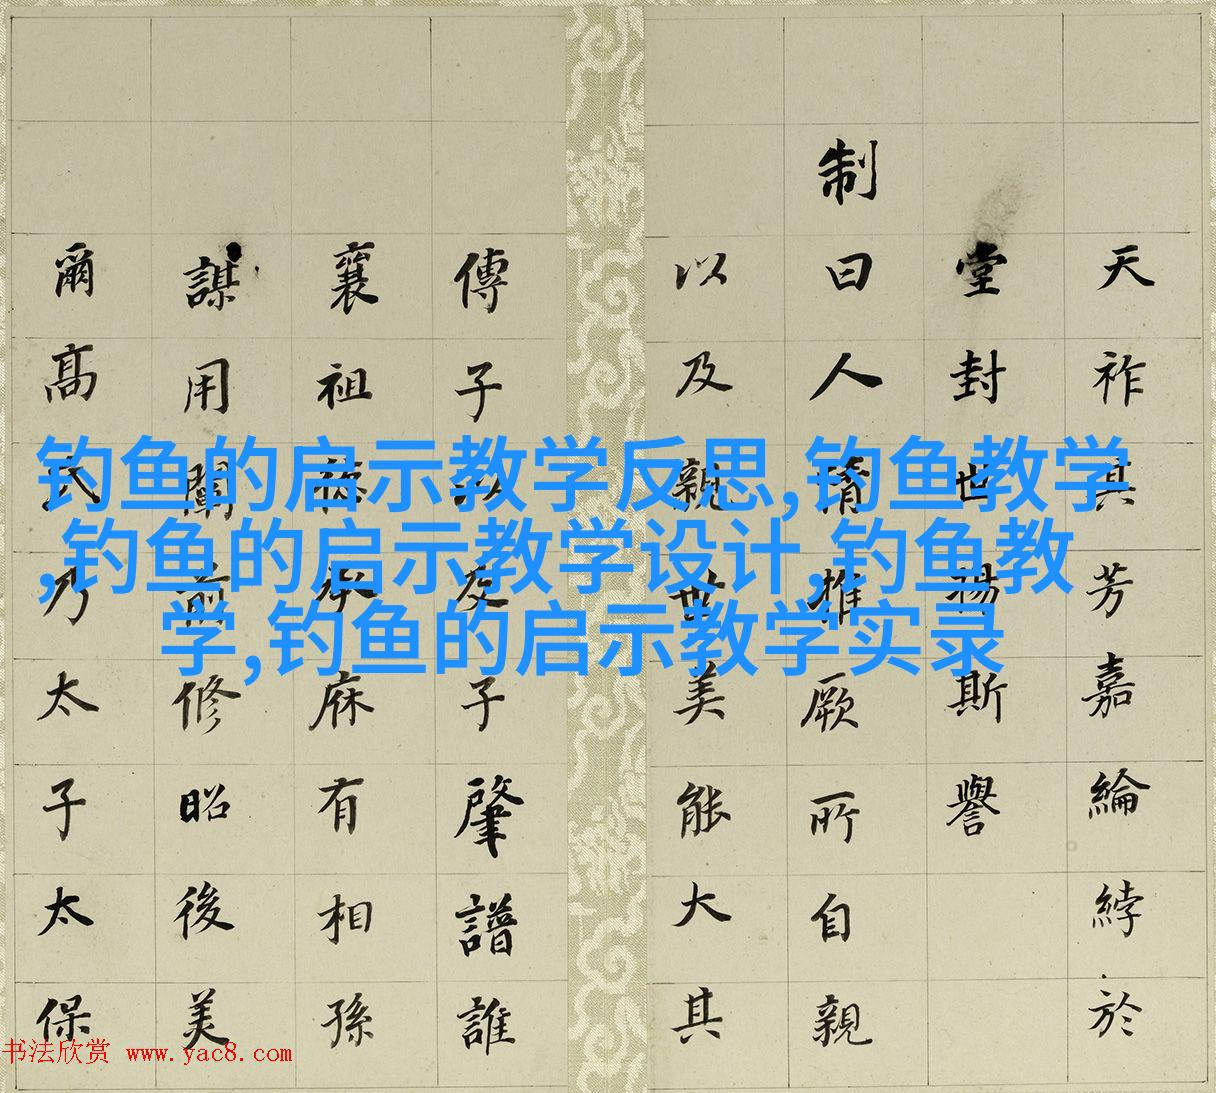 钓鱼的启示教学反思,钓鱼教学
,钓鱼的启示教学设计,钓鱼教
学,钓鱼的启示教学实录
天祚其芳嘉綸綍於
堂封世揚斯譽
制曰人推厥所自親
以及親世美能大其
傳子及子肇譜誰
襄祖德承庥有相孫
謀用闡前修昭後美
爾高氏乃太子太保
书法欣赏 www.yac8.com